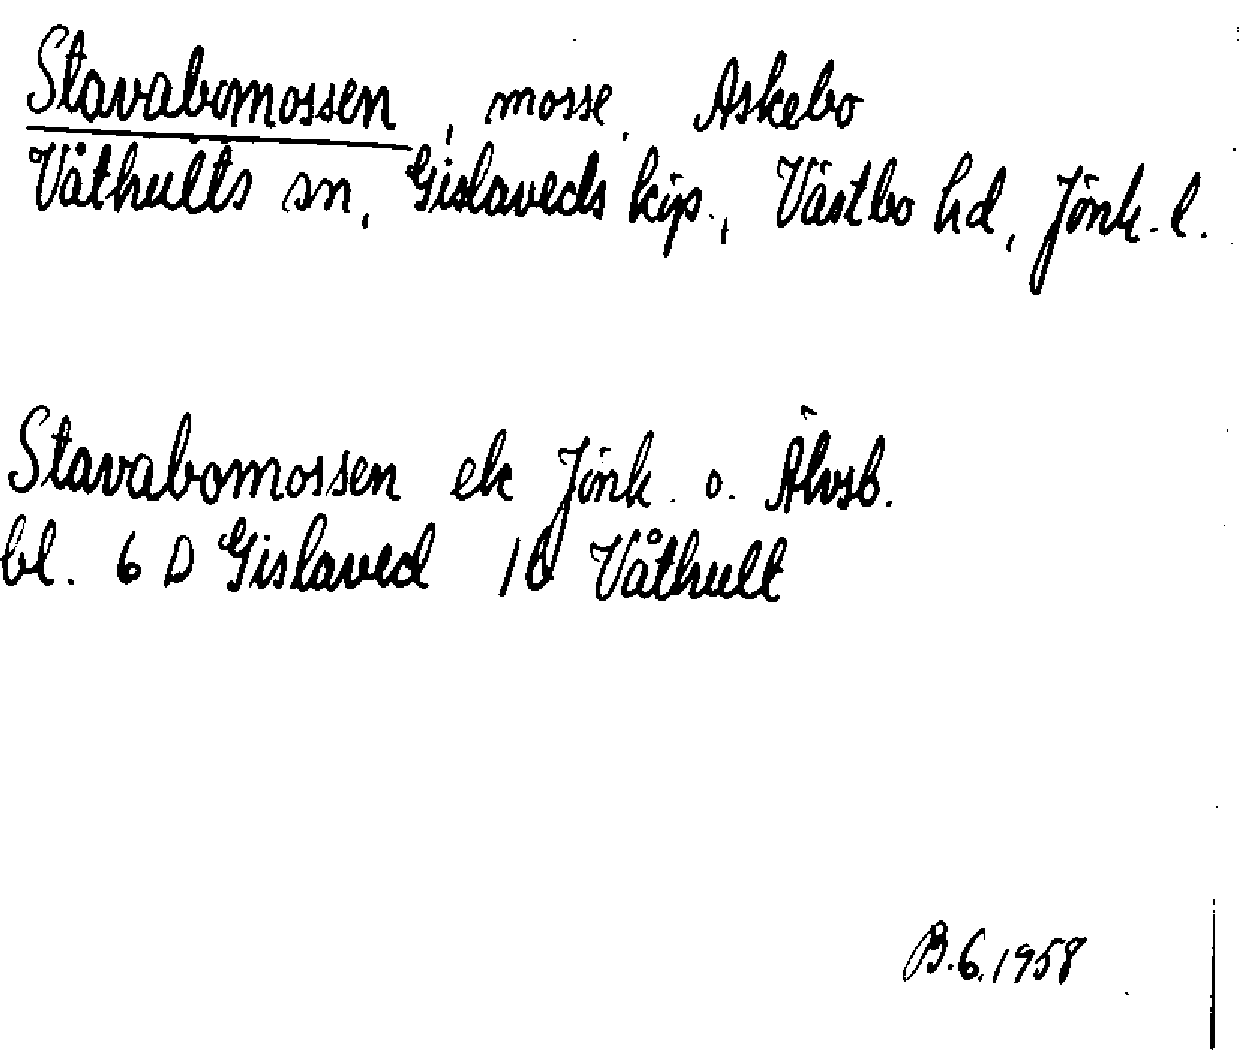 Stavabomossen, mosse, Askebo
Våthults sn, Gislaveds kip., Västbo hd, Jönk. l.
Stavabomossen ek Jönk. o. Älvsb.
bl. 6 D Gislaved 1b Våthult
B.6.1958